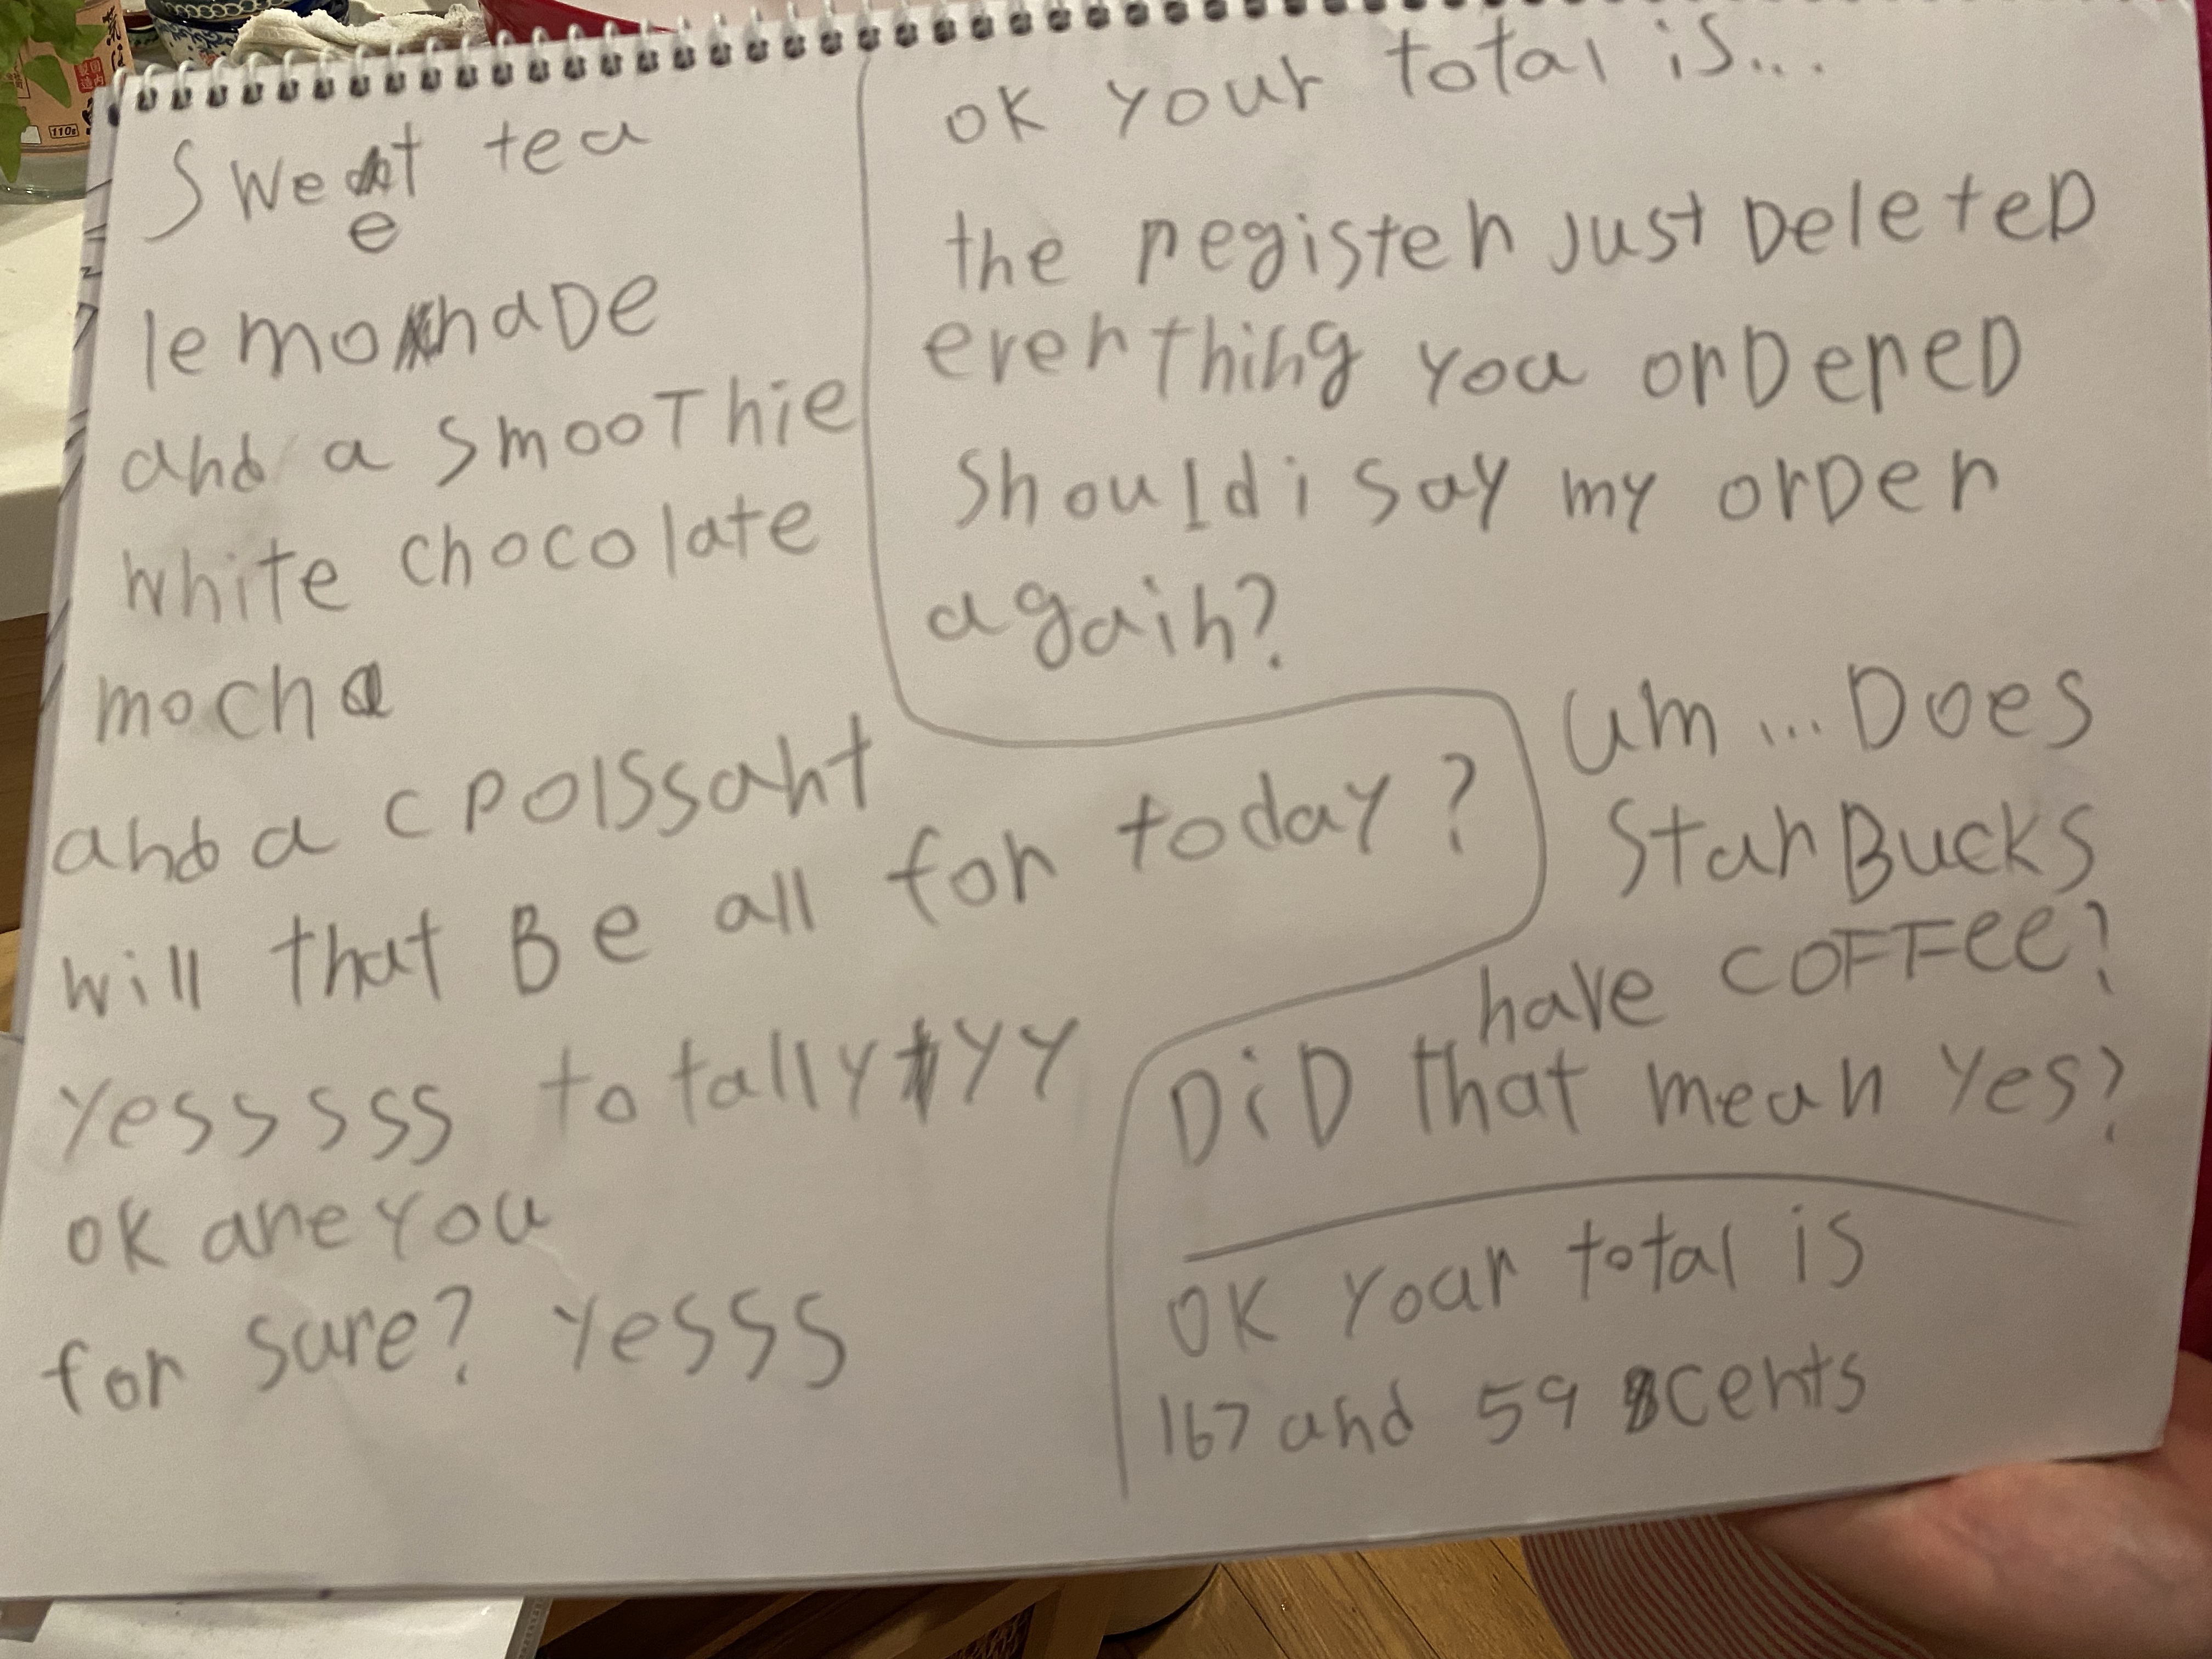 Sweet tea
lemonade
and a smooThie
white chocolate
mocha
and a croissant
will that Be all for today?
yesssss totallyyy
ok are you
for sure? yesss
ok your total is...
the register just DeleteD
everthing you orDereD
Should i say my orDer
again?
um... Does
StarBucks
have coFFee?
DiD that mean yes?
OK your total is
167 and 59 cents
110g
国内
製造